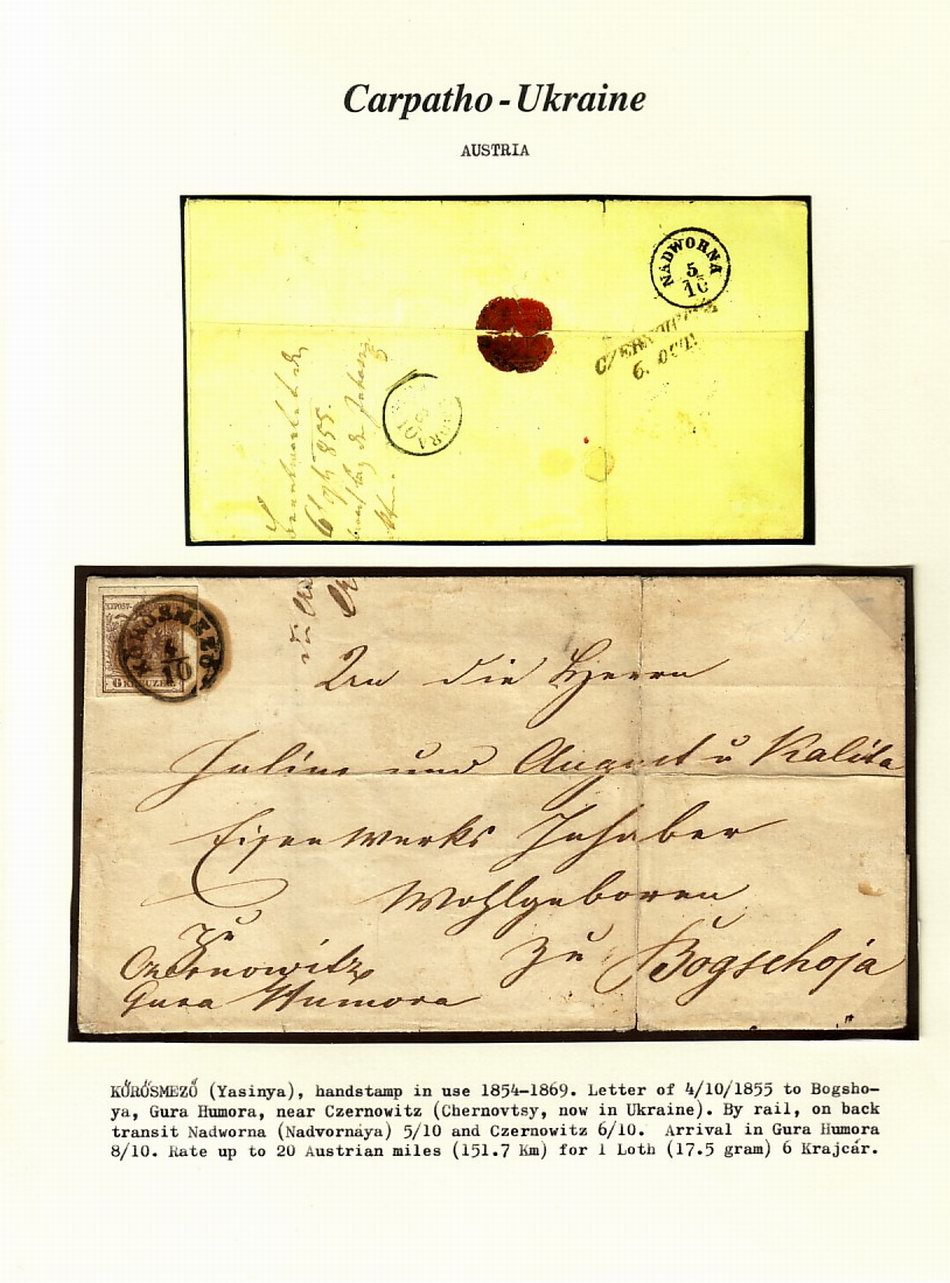 Carpatho-Ukraine
AUSTRIA
NADWORNA
5
10
CZERNOWITZ
6. OCT.
855.
KÖRÖSMEZŐ
10
6 KREUZER
An die Herrn
Julius und August v Kalita
Eisenwerks Inhaber
Wohlgeboren
zu Bogschoja
Zu
Czernowitz
Gura Humora
KŐRÖSMEZŐ (Yasinya), handstamp in use 1854-1869. Letter of 4/10/1855 to Bogsho-
ya, Gura Humora, near Czernowitz (Chernovtsy, now in Ukraine). By rail, on back
transit Nadworna (Nadvornaya) 5/10 and Czernowitz 6/10. Arrival in Gura Humora
8/10. Rate up to 20 Austrian miles (151.7 Km) for 1 Loth (17.5 gram) 6 Krajcár.